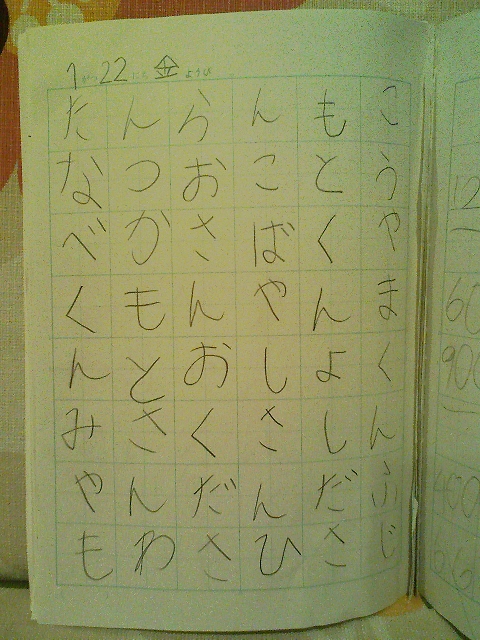 1がつ22にち金ようび
こうやまくんふじ
もとくんよしださ
んこばやしさんひ
らおさんおくださ
んつかもとさんわ
たなべくんみやも
12
60
900
400
66